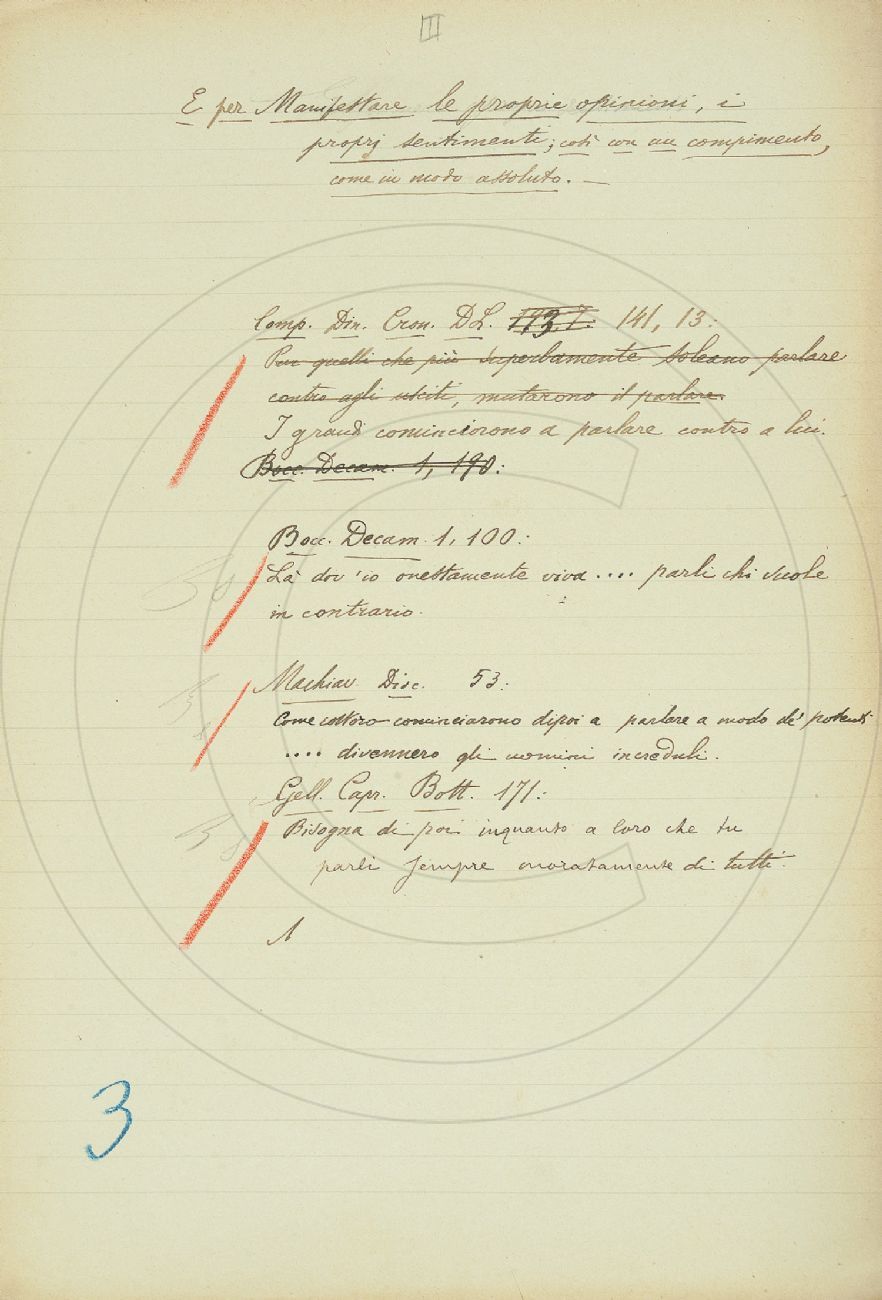 III
E per Manifestare le proprie opinioni, i
proprj sentimenti; così con un compimento,
come in modo assoluto. —
Comp. Din. Cron. DL. 193,7. 141, 13:
Pur quelli che più superbamente soleano parlare
contro agli usciti, mutarono il parlare.
I grandi cominciorono a parlare contro a lui.
Bocc. Decam. 1, 190:
Bocc. Decam. 1, 100:
Là dov'io onestamente viva .... parli chi vuole
in contrario.
Machiav. Disc. 53:
Come costoro cominciarono dipoi a parlare a modo de' potenti
.... divennero gli uomini increduli.
Gell. Capr. Bott. 171:
Bisogna di poi inquanto a loro che tu
parli sempre onoratamente di tutti.
3